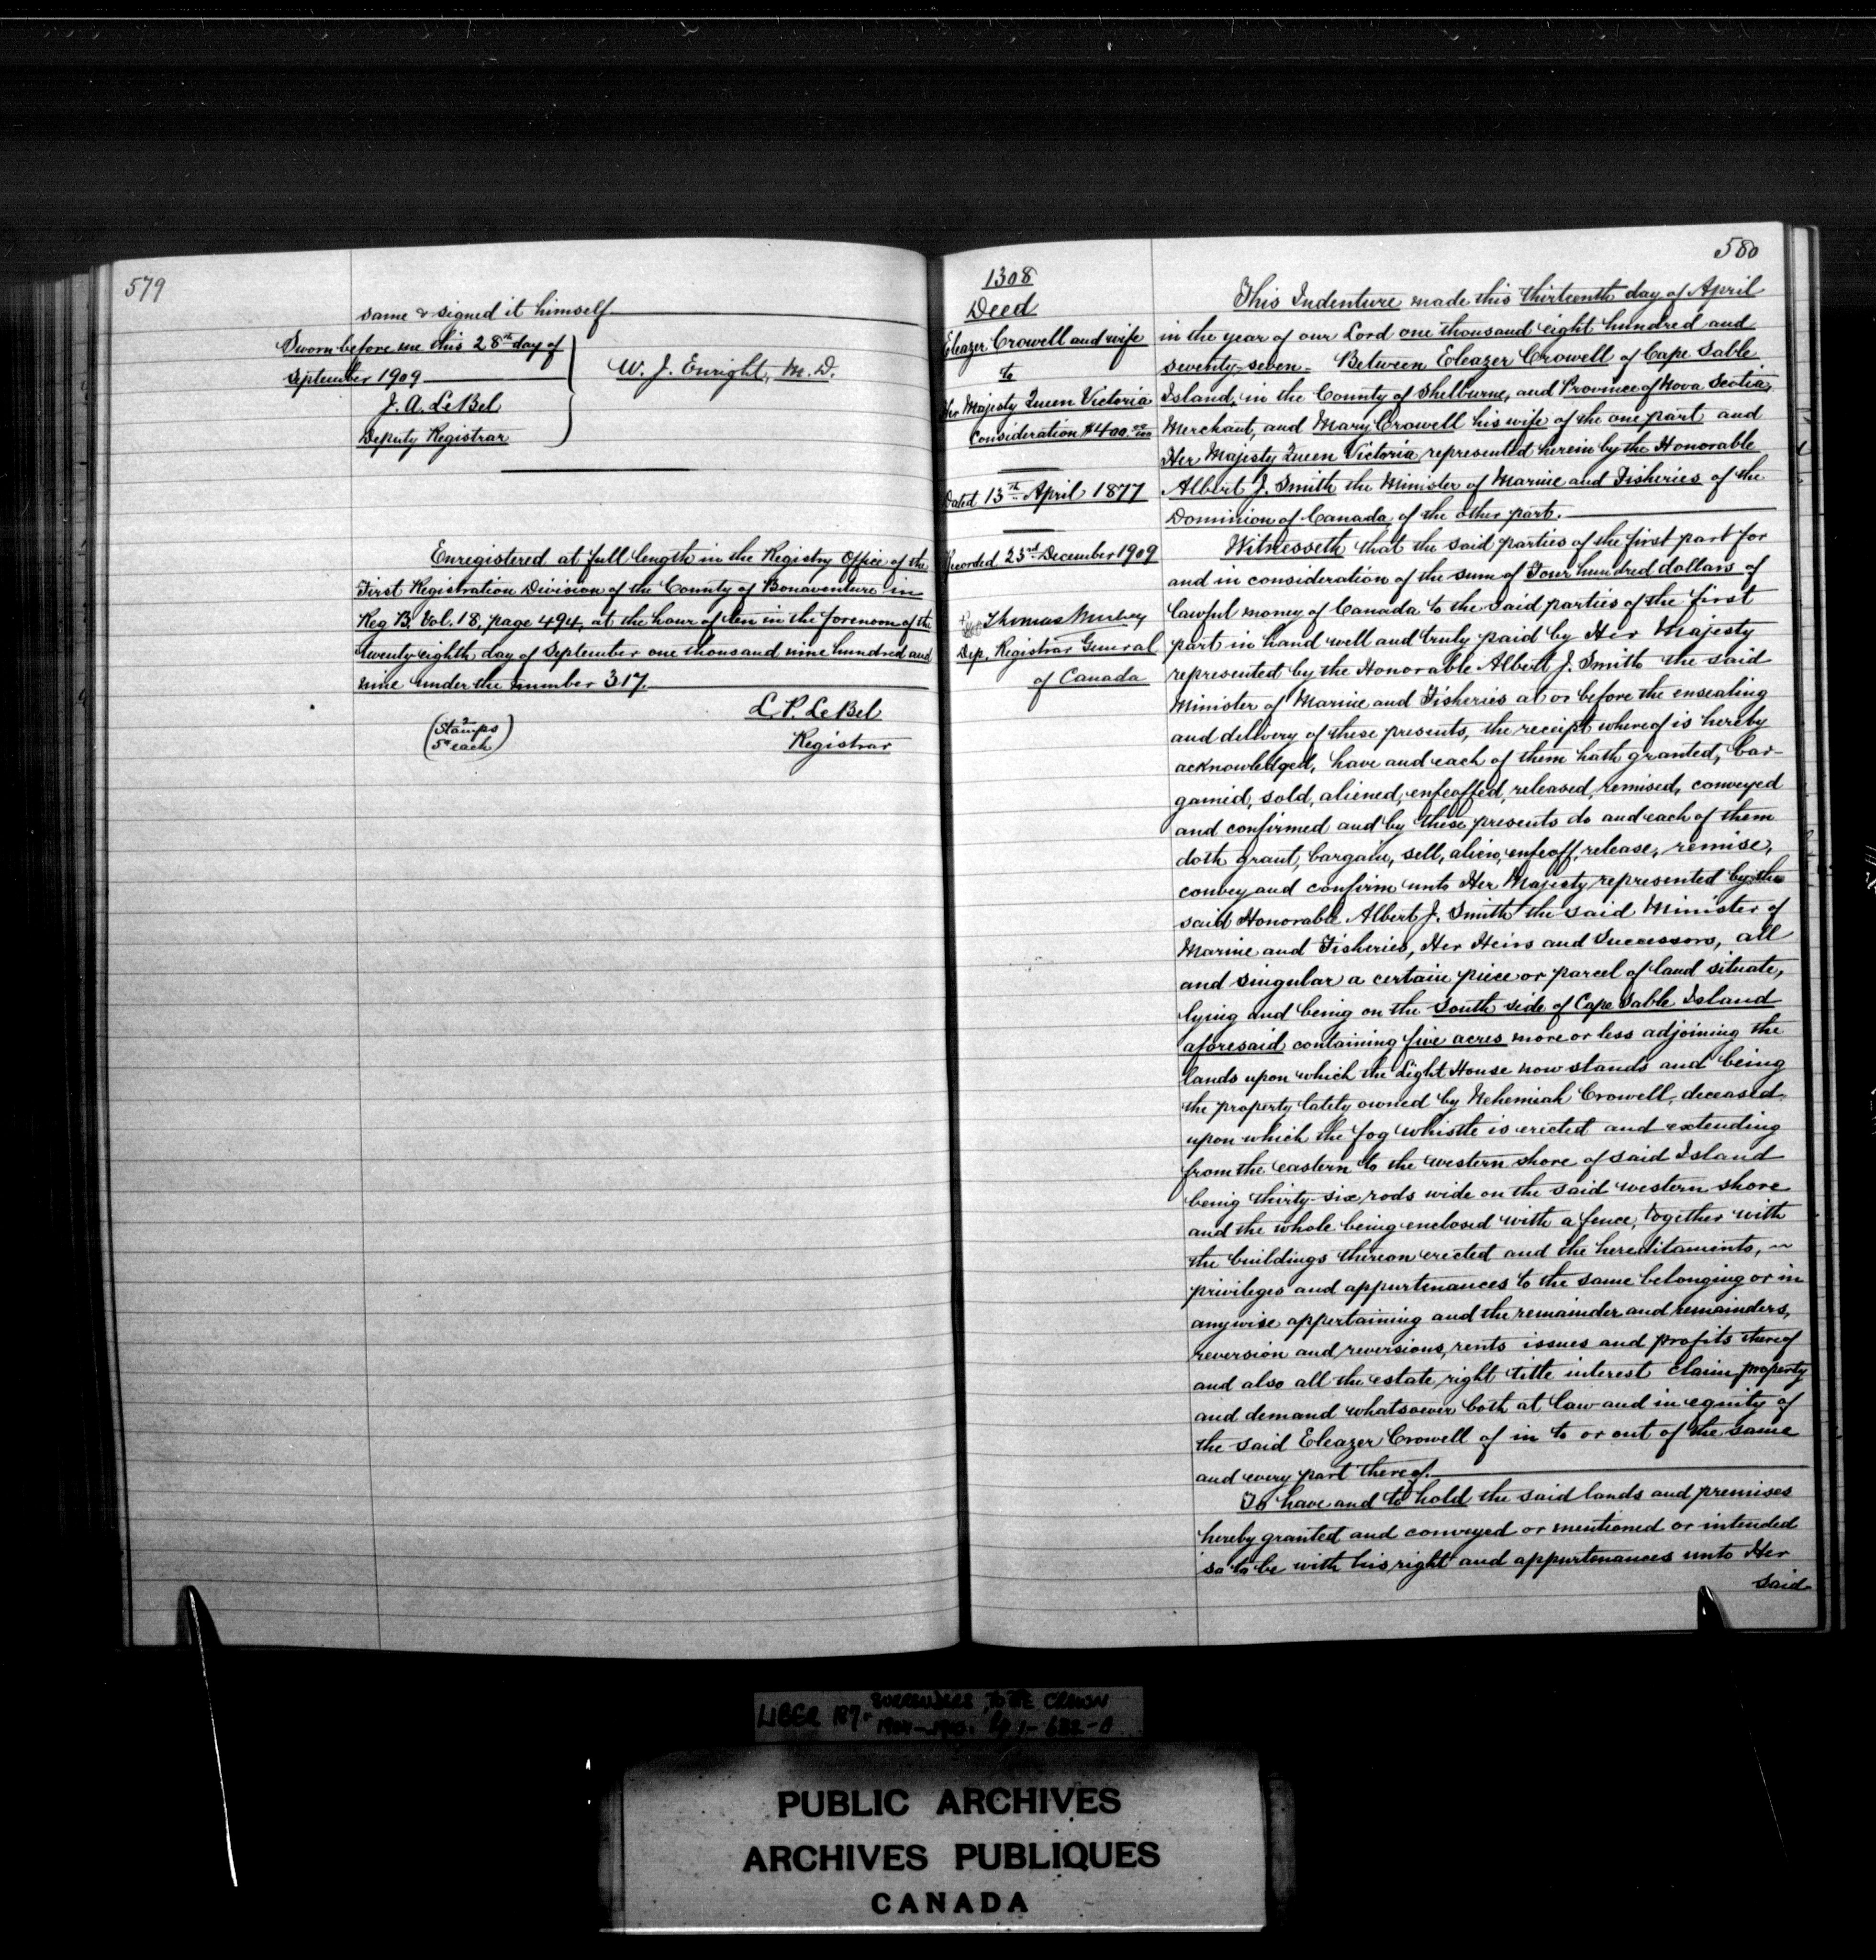 579
same & signed it himself
Sworn before me this 28th day of
September 1909
J. A. LeBel
Deputy Registrar
W. J. Enright, M. D.
Enregistered at full length in the Registry Office of the
First Registration Division of the County of Bonaventure in
Reg B, Vol. 18, page 494, at the hour of ten in the forenoon of the
twenty-eighth day of September one thousand nine hundred and
nine under the number 317.
L. P. LeBel
Registrar
(2 Stamps
5¢ each)
580
1308
Deed
Eleazer Crowell and wife
to
Her Majesty Queen Victoria
Consideration $400.00
Dated 13th April 1877
Recorded 23rd December 1909
Thomas Mulvey
Dep. Registrar General
of Canada
This Indenture made this thirteenth day of April
in the year of our Lord one thousand eight hundred and
seventy-seven. Between Eleazer Crowell of Cape Sable
Island, in the County of Shelburne, and Province of Nova Scotia,
Merchant, and Mary Crowell his wife of the one part and
Her Majesty Queen Victoria represented herein by the Honorable
Albert J. Smith the Minister of Marine and Fisheries of the
Dominion of Canada of the other part.
Witnesseth that the said parties of the first part for
and in consideration of the sum of Four hundred dollars of
lawful money of Canada to the said parties of the first
part in hand well and truly paid by Her Majesty
represented by the Honorable Albert J. Smith the said
Minister of Marine and Fisheries at or before the ensealing
and delivery of these presents, the receipt whereof is hereby
acknowledged, have and each of them hath granted, bar-
gained, sold, aliened, enfeoffed, released, remised, conveyed
and confirmed and by these presents do and each of them
doth grant, bargain, sell, alien, enfeoff, release, remise,
convey and confirm unto Her Majesty represented by the
said Honorable Albert J. Smith the said Minister of
Marine and Fisheries, Her Heirs and Successors, all
and singular a certain piece or parcel of land situate,
lying and being on the South side of Cape Sable Island
aforesaid containing five acres more or less adjoining the
lands upon which the Light House now stands and being
the property lately owned by Nehemiah Crowell, deceased,
upon which the fog whistle is erected and extending
from the eastern to the western shore of said Island
being thirty-six rods wide on the said western shore
and the whole being enclosed with a fence, together with
the buildings thereon erected and the hereditaments, ~
privileges and appurtenances to the same belonging or in
anywise appertaining and the remainder and remainders,
reversion and reversions, rents issues and profits thereof
and also all the estate right title interest claim property
and demand whatsoever both at law and in equity of
the said Eleazer Crowell of in to or out of the same
and every part thereof.
To have and to hold the said lands and premises
hereby granted and conveyed or mentioned or intended
so to be with his right and appurtenances unto Her
said
LIBER 187. SURRENDERS TO THE CROWN
PUBLIC ARCHIVES
ARCHIVES PUBLIQUES
CANADA